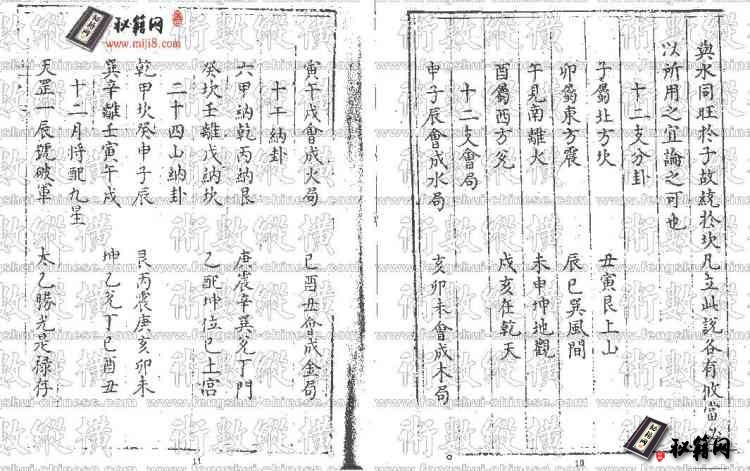 與水同旺於子故統於坎凡立此說各有攸當
以所用之宜論之可也
十二支分卦
子屬北方坎 丑寅艮上山
卯屬東方震 辰巳巽風間
午見南離火 未申坤地觀
酉屬西方兌 戌亥在乾天
十二支會局
申子辰會成水局 亥卯未會成木局
10
寅午戌會成火局 巳酉丑會成金局
十干納卦
六甲納乾丙納艮 庚震辛巽兌丁門
癸坎壬離戊納坎 乙配坤位己土宮
二十四山納卦
乾甲坎癸申子辰 艮丙震庚亥卯未
巽辛離壬寅午戌 坤乙兌丁巳酉丑
十二月將配九星
天罡一辰號破軍 太乙勝光是祿存
11
秘籍网
www.miji8.com
秘籍网
術數縱橫
www.fengshui-chinese.com